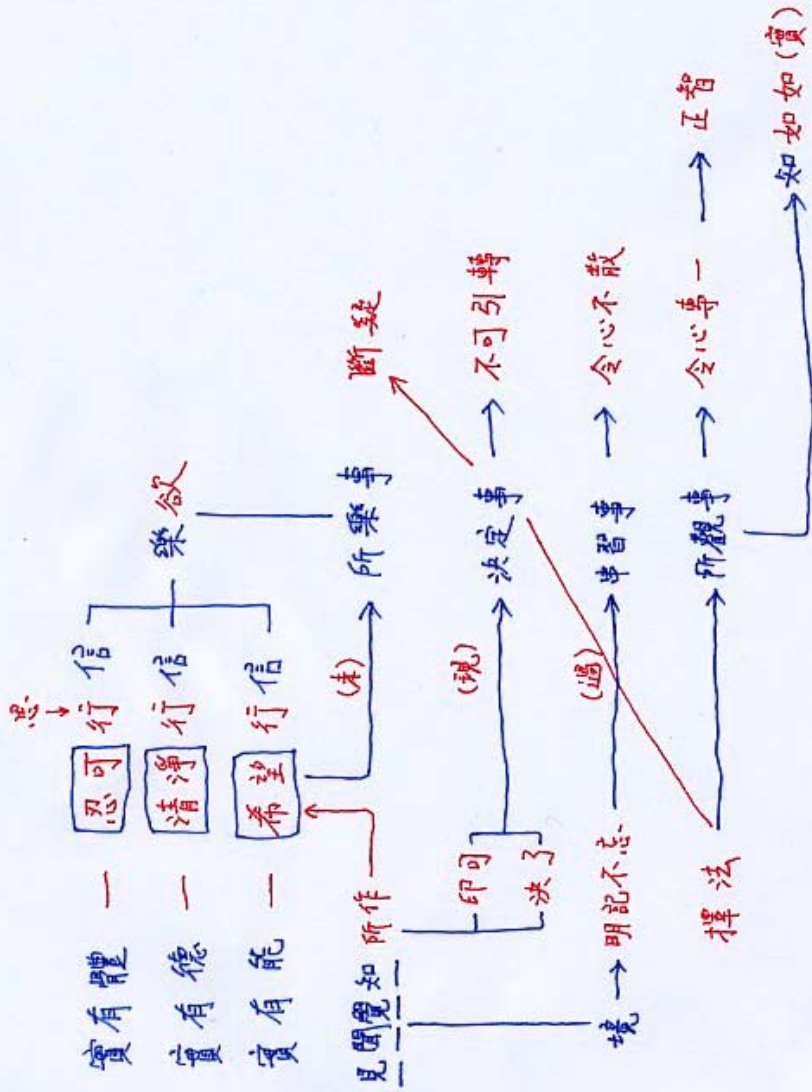 思
實有體 — 忍可 行信
實有德 — 清淨 行信
實有能 — 希望 行信
樂欲
見聞覺知 所作
(未) 所樂事
斷疑
印可
決了
(現) 決定事 → 不可引轉
境 → 明記不忘 (過) 串習事 → 令心不散
擇法 → 所觀事 → 令心專一 → 正智
知如如(實)